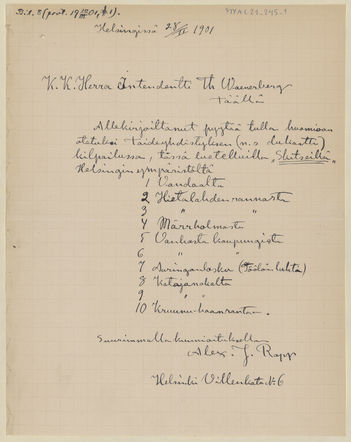 Helsingissä 28/II 1901
K. K. Herra Intendentti Th Waenerberg
Täällä
Allekirjoittanut pyytää tulla huomioon
otetuksi Taideyhdistyksen (n. s dukaatti)
kilpailussa, tässä luetelluilla "Skitseillä"
Helsingin ympäristöltä
1 Vandaalta
2 Hietalahden rannasta
3 " "
4 Märrholmasta
5 Vanhasta kaupungista
6 " "
7 Auringonlasku (Töölön lahti)
8 Katajanokalta
9 " "
10 Kruunuhaanranta.
Suurimmalla kunnioituksella
Alex. J. Rapp
Helsinki Villenkatu № 6